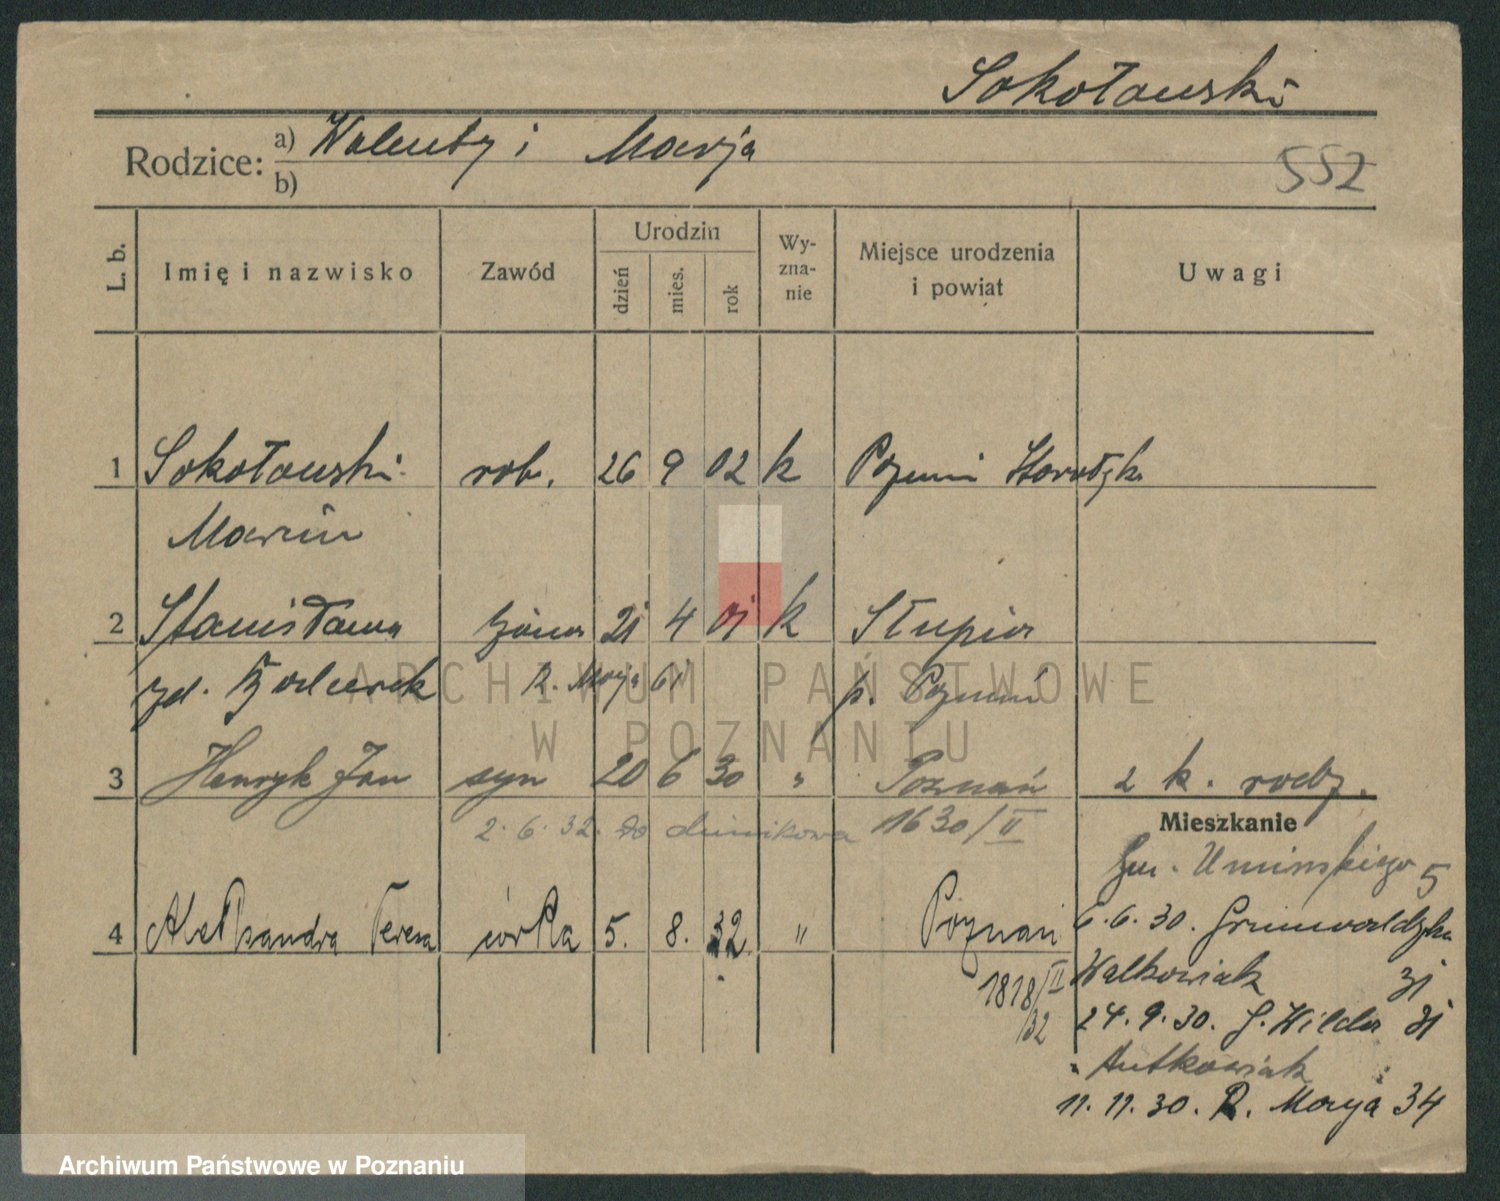 Sokołowski
Rodzice: a) Walenty i Marja
b)
552
L. b.
Imię i nazwisko
Zawód
Urodzin
dzień
mies.
rok
Wy-
zna-
nie
Miejsce urodzenia
i powiat
Uwagi
1 Sokołowski rob. 26 9 02 k Poznań Starołęka
Marcin
2 Stanisława żona 21 4 01 k Słupia
zd. R. Marja 61 p. Poznań
3 Henryk Jan syn 20 6 30 " Poznań 2 k. rodz.
2.6.32. do 1630/II
Mieszkanie
Gen. Umińskiego 5
4 Aleksandra Teresa córka 5. 8. 32 " Poznań
1818/II
/32
6.6.30. Grunwaldzka
Walkowiak 31
24.9.30. G. Wilda 31
Antkowiak
11.11.30. R. Marja 34
ARCHIWUM PAŃSTWOWE
W POZNANIU
Archiwum Państwowe w Poznaniu